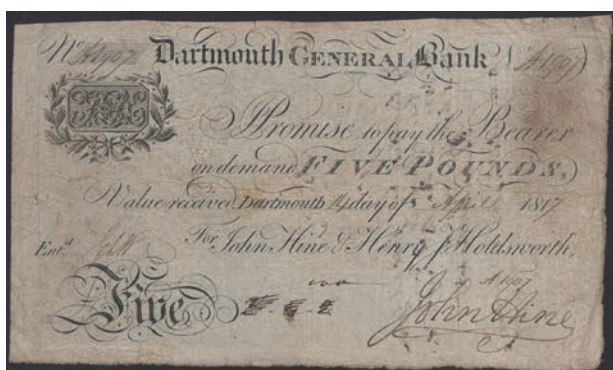 No. A1907 Dartmouth GENERAL Bank No. A1907
I Promise to pay the Bearer
on demand FIVE POUNDS,
Value received, Dartmouth 14 day of April 1817
Entd. For John Hine & Henry J Holdsworth,
A1907
Five John Hine